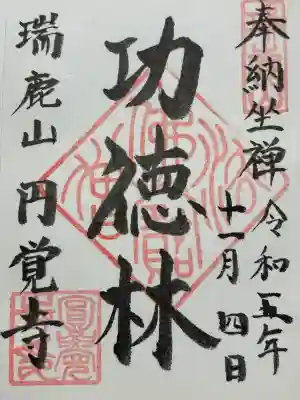 奉納坐禅 令和五年
十一月四日
功徳林
瑞鹿山円覚寺
佛法僧寶